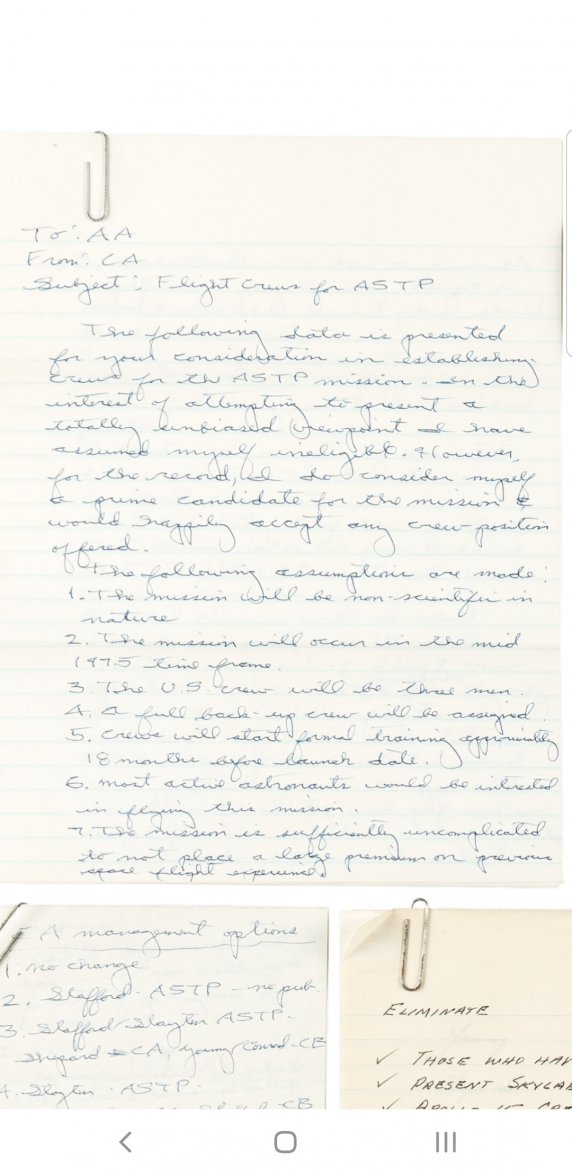 To: AA
From: CA
Subject: Flight Crews for ASTP
The following data is presented
for your consideration in establishing
crews for the ASTP mission. In the
interest of attempting to present a
totally unbiased viewpoint I have
assumed myself ineligible. However,
for the record, I do consider myself
a prime candidate for the mission &
would happily accept any crew position
offered.
The following assumptions are made:
1. The mission will be non-scientific in
nature
2. The mission will occur in the mid
1975 time frame.
3. The U.S. crew will be three men.
4. A full back-up crew will be assigned.
5. Crews will start formal training approximately
18 months before launch date.
6. Most active astronauts would be interested
in flying this mission.
7. The mission is sufficiently uncomplicated
to not place a large premium on previous
space flight experience.
A management options
1. no change
2. Stafford - ASTP - no pub.
3. Stafford/Slayton ASTP -
Shepard CA, Young/Conrad - CB
4. Slayton - ASTP -
- CB
ELIMINATE
✓ THOSE WHO HAV
✓ PRESENT SKYLAB
✓ APOLLO